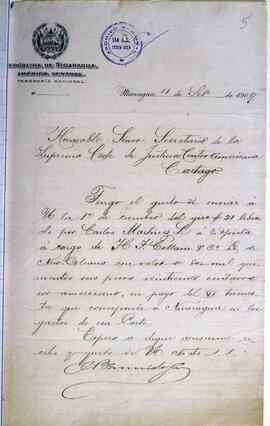 5
REPÚBLICA DE NICARAGUA
AMÉRICA CENTRAL
TESORERÍA NACIONAL
ARCHIVO
SAN JOSÉ
COSTA RICA
Nº
Managua, 11 de Sete de 1909
Honorable Señor Secretario de la
Suprema Corte de Justicia Centro Americana
Cartago
Tengo el gusto de enviar á
U la 1ra de cambio del giro # 21 libra
do por Carlos Martínez L á 3 d/vista
á cargo de
de New Orleans con valor de dos mil qui
nientos seis pesos veintiún centavos
oro americano, en pago del VI trimes
tre que corresponde á Nicaragua en los
gastos de esa Corte.
Espero se digne acusarme re
cibo y quedo de U atto s. s.